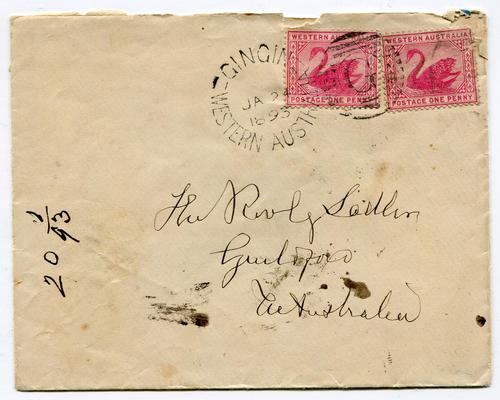 WESTERN AUSTRALIA
POSTAGE ONE PENNY
WESTERN AUSTRALIA
POSTAGE ONE PENNY
GINGIN
JA 2
1893
WESTERN AUSTR
The
Guildford
W Australia
20 1/93